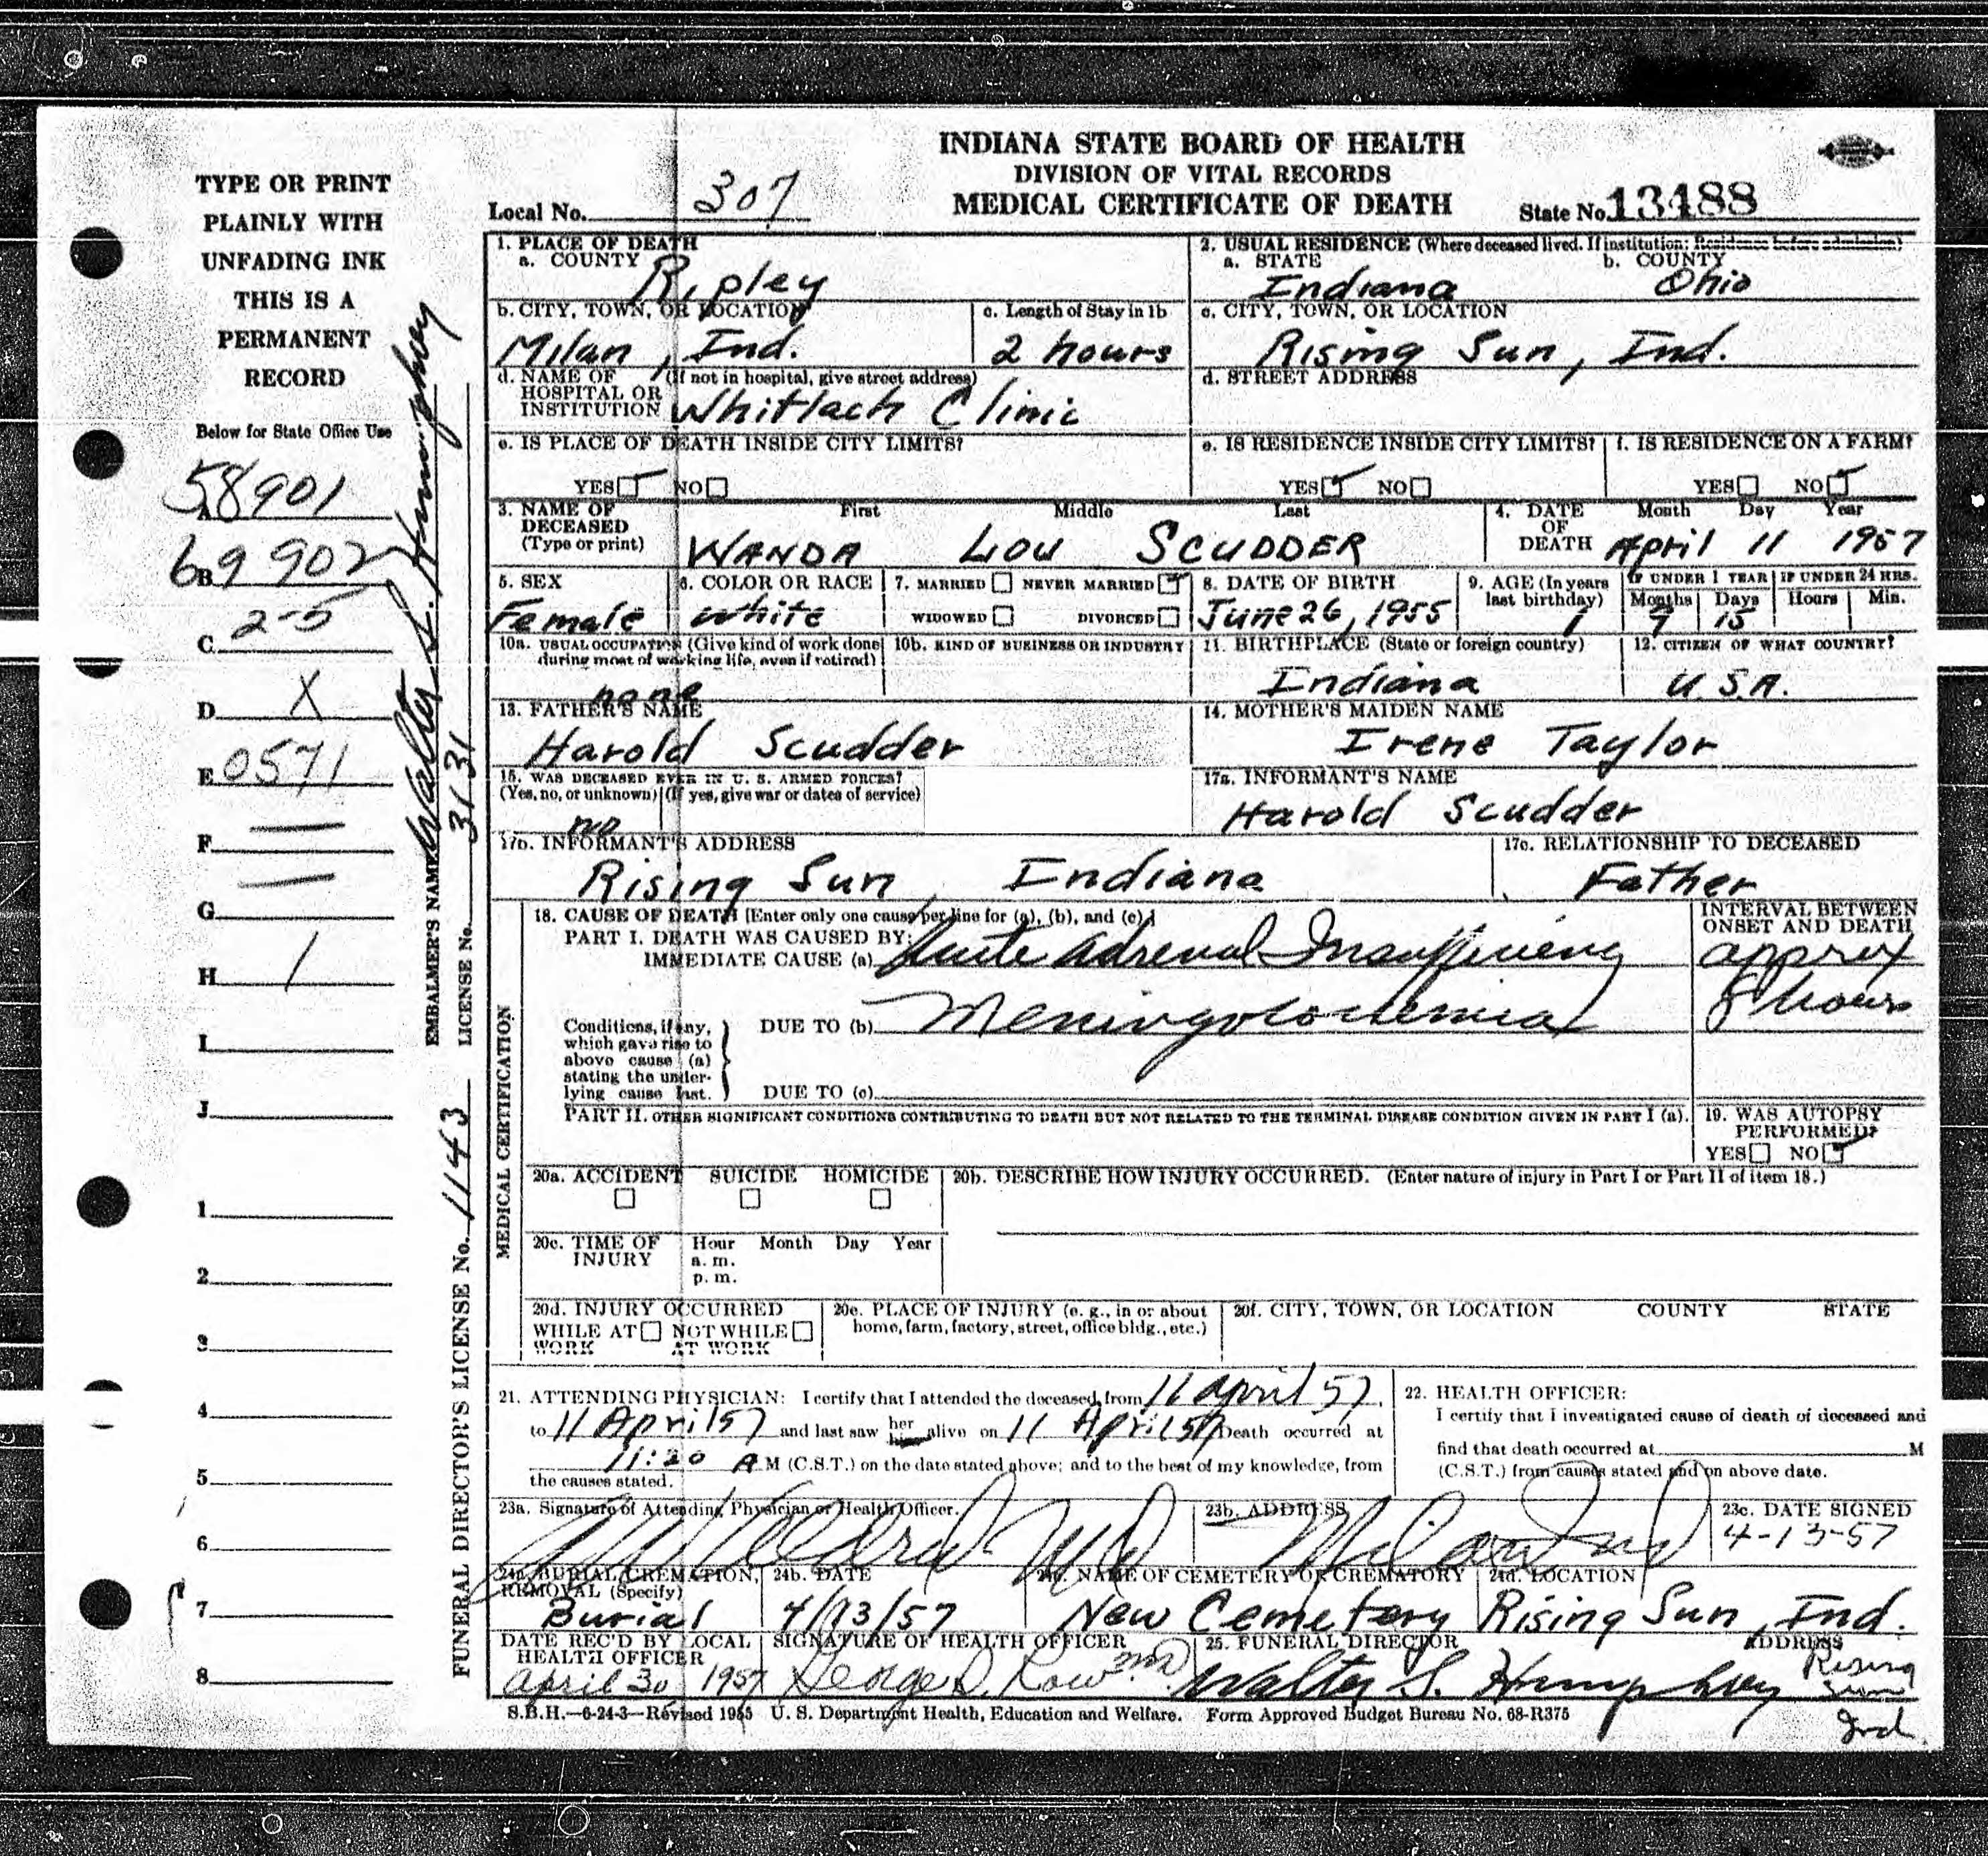 INDIANA STATE BOARD OF HEALTH
DIVISION OF VITAL RECORDS
MEDICAL CERTIFICATE OF DEATH
Local No. 307
State No. 13488
TYPE OR PRINT
PLAINLY WITH
UNFADING INK
THIS IS A
PERMANENT
RECORD
Below for State Office Use
58901
A
69 902
B
2-5
C
D X
E 0571
F
G
H 1
I
J
1
2
3
4
5
6
7
8
EMBALMER'S NAME Walter S. Humphrey
LICENSE No. 3131
FUNERAL DIRECTOR'S LICENSE No. 1143
1. PLACE OF DEATH
a. COUNTY Ripley
2. USUAL RESIDENCE (Where deceased lived. If institution: Residence before admission)
a. STATE Indiana b. COUNTY Ohio
b. CITY, TOWN, OR LOCATION Milan, Ind.
c. Length of Stay in 1b 2 hours
c. CITY, TOWN, OR LOCATION Rising Sun, Ind.
d. NAME OF (If not in hospital, give street address)
HOSPITAL OR
INSTITUTION Whitlach Clinic
d. STREET ADDRESS
e. IS PLACE OF DEATH INSIDE CITY LIMITS?
YES NO
e. IS RESIDENCE INSIDE CITY LIMITS?
YES NO
f. IS RESIDENCE ON A FARM?
YES NO
3. NAME OF First Middle Last
DECEASED
(Type or print) WANDA LOU SCUDDER
4. DATE Month Day Year
OF
DEATH April 11 1957
5. SEX Female
6. COLOR OR RACE White
7. MARRIED NEVER MARRIED
WIDOWED DIVORCED
8. DATE OF BIRTH June 26, 1955
9. AGE (In years
last birthday) 1
IF UNDER 1 YEAR IF UNDER 24 HRS.
Months Days Hours Min.
9 15
10a. USUAL OCCUPATION (Give kind of work done
during most of working life, even if retired)
none
10b. KIND OF BUSINESS OR INDUSTRY
11. BIRTHPLACE (State or foreign country)
Indiana
12. CITIZEN OF WHAT COUNTRY?
U.S.A.
13. FATHER'S NAME
Harold Scudder
14. MOTHER'S MAIDEN NAME
Irene Taylor
15. WAS DECEASED EVER IN U. S. ARMED FORCES?
(Yes, no, or unknown) (If yes, give war or dates of service)
no
17a. INFORMANT'S NAME
Harold Scudder
17b. INFORMANT'S ADDRESS
Rising Sun, Indiana
17c. RELATIONSHIP TO DECEASED
Father
MEDICAL CERTIFICATION
18. CAUSE OF DEATH [Enter only one cause per line for (a), (b), and (c).]
PART I. DEATH WAS CAUSED BY:
IMMEDIATE CAUSE (a) Acute Adrenal Insufficiency
INTERVAL BETWEEN
ONSET AND DEATH
approx
8 hours
Conditions, if any,
which gave rise to
above cause (a)
stating the under-
lying cause last.
DUE TO (b) Meningococcemia
DUE TO (c)
PART II. OTHER SIGNIFICANT CONDITIONS CONTRIBUTING TO DEATH BUT NOT RELATED TO THE TERMINAL DISEASE CONDITION GIVEN IN PART I (a).
19. WAS AUTOPSY
PERFORMED?
YES NO
20a. ACCIDENT SUICIDE HOMICIDE
20b. DESCRIBE HOW INJURY OCCURRED. (Enter nature of injury in Part I or Part II of item 18.)
20c. TIME OF Hour Month Day Year
INJURY a. m.
p. m.
20d. INJURY OCCURRED
WHILE AT NOT WHILE
WORK AT WORK
20e. PLACE OF INJURY (e. g., in or about
home, farm, factory, street, office bldg., etc.)
20f. CITY, TOWN, OR LOCATION COUNTY STATE
21. ATTENDING PHYSICIAN: I certify that I attended the deceased from 11 April 57,
to 11 April 57 and last saw her him alive on 11 April 57 Death occurred at
11:20 A M (C.S.T.) on the date stated above; and to the best of my knowledge, from
the causes stated.
22. HEALTH OFFICER:
I certify that I investigated cause of death of deceased and
find that death occurred at M
(C.S.T.) from causes stated and on above date.
23a. Signature of Attending Physician or Health Officer.
MD
23b. ADDRESS
Milan, Ind
23c. DATE SIGNED
4-13-57
24a. BURIAL, CREMATION,
REMOVAL (Specify)
Burial
24b. DATE
4/13/57
24c. NAME OF CEMETERY OR CREMATORY
New Cemetery
24d. LOCATION
Rising Sun, Ind.
DATE REC'D BY LOCAL
HEALTH OFFICER
April 30 1957
SIGNATURE OF HEALTH OFFICER
George S. Row MD
25. FUNERAL DIRECTOR ADDRESS
Walter S. Humphrey Rising
Sun
Ind.
S.B.H.—6-24-3—Revised 1955 U. S. Department Health, Education and Welfare. Form Approved Budget Bureau No. 68-R375